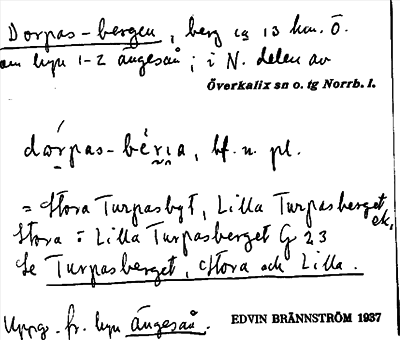 Dorpas-bergen, berg ca 13 km. Ö.
om byn 1-2 Ängesån; i N. delen av
Överkalix sn o. tg Norrb. l.
dórpas-bérıa, bf. n. pl.
= Stora Turpasbgt, Lilla Turpasberget ek.
Stora = Lilla Turpasberget G 23
Se Turpasberget, Stora och Lilla.
Uppg. fr. byn Ängesån. EDVIN BRÄNNSTRÖM 1937